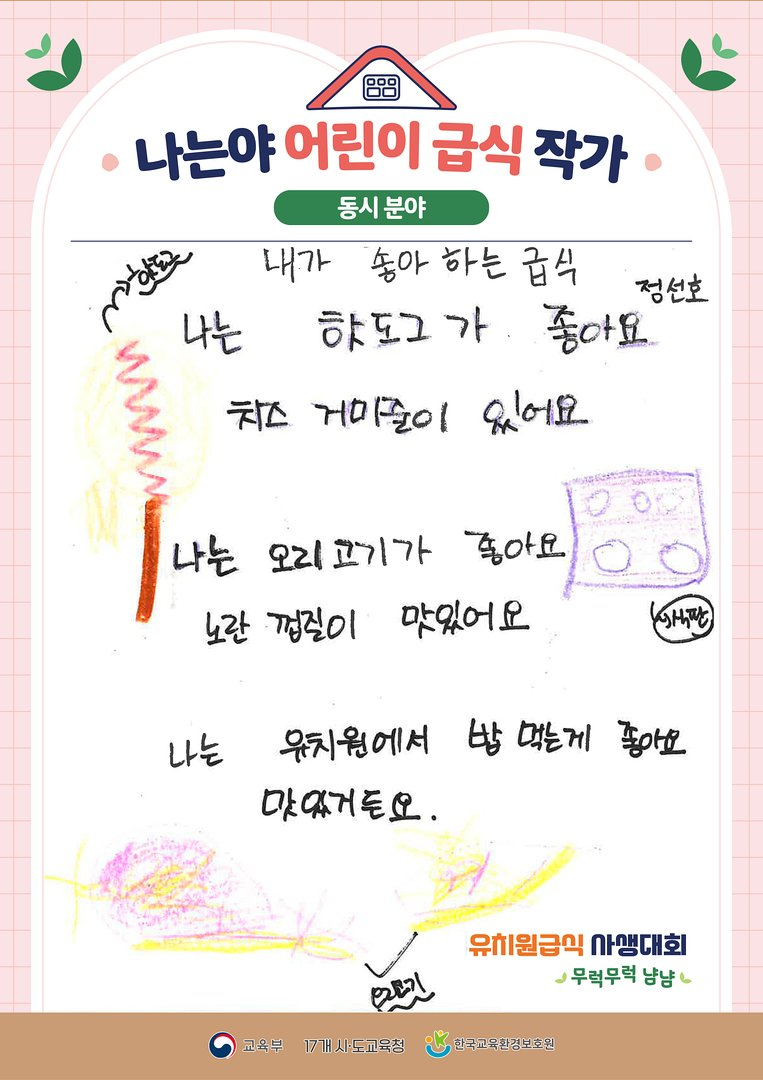 나는야 어린이 급식 작가
동시 분야
내가 좋아 하는 급식
핫도그
점선호
나는 핫도그가 좋아요
치즈 거미줄이 있어요
나는 오리고기가 좋아요
노란 껍질이 맛있어요
식판
나는 유치원에서 밥 먹는게 좋아요
맛있거든요.
유치원급식 사생대회
무럭무럭 냠냠
오리고기
교육부 17개 시·도교육청 한국교육환경보호원